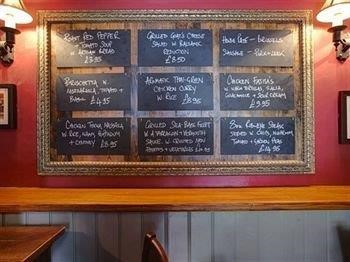 Roast Red Pepper
Tomato Soup
w Artisan Bread
£3.95
Grilled Goats Cheese
Salad w Balsamic
Reduction
£6.50
- Brussels
- Pork + Leek
Bruschetta w
Mozzarella, Tomato +
Basil £4.95
Aromatic Thai Green
Chicken Curry
w Rice £8.95
Chicken Fajitas
w Warm Tortillas, Salsa,
Guacamole + Sour Cream
£9.95
Chicken Tikka Massala
w Rice, Naan, Poppadom
+ Chutney £8.95
Grilled Sea Bass Fillet
w A Tarragon + Vermouth
Sauce w Crushed New
Potatoes + Vegetables
8oz Rib-Eye Steak
Served w Chips, Mushroom,
Tomato + Garden Peas
£14.95